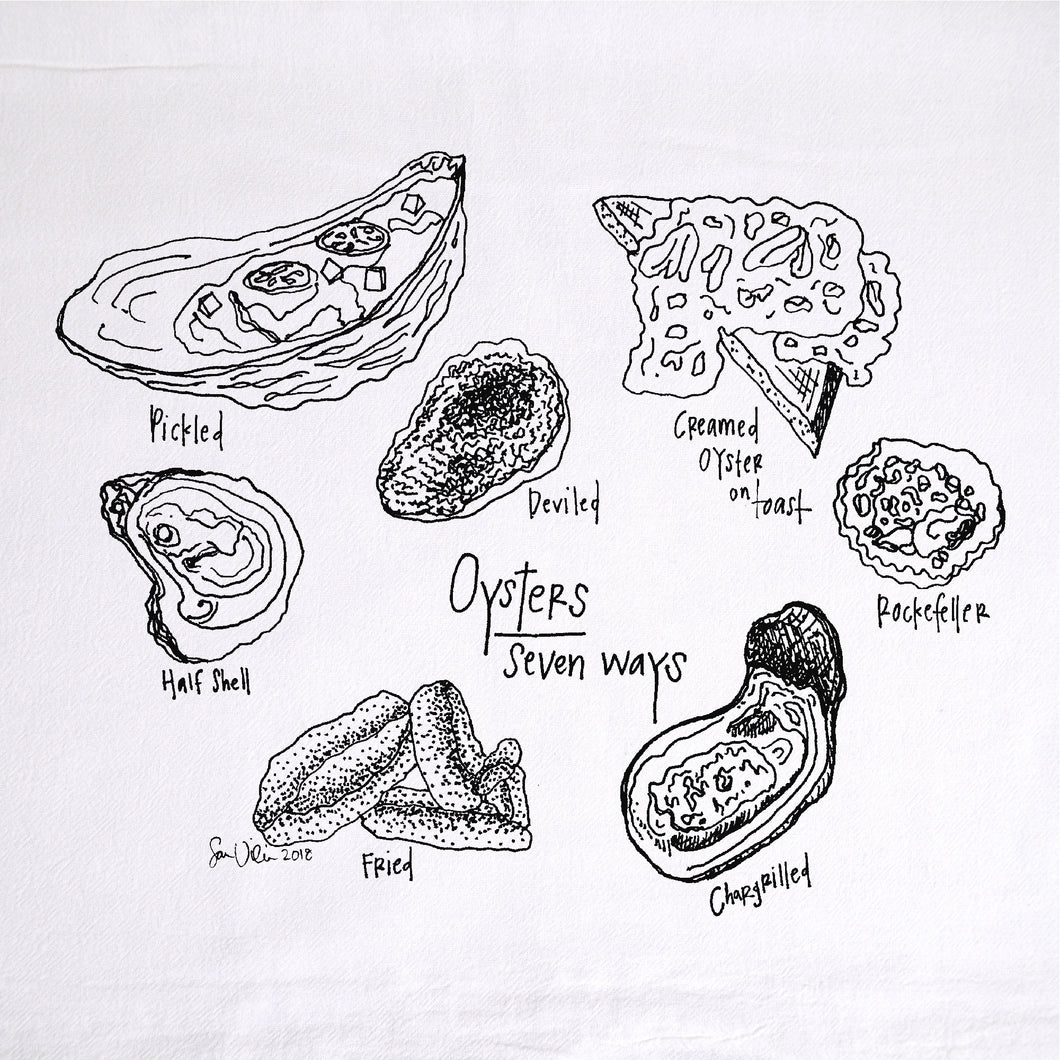 Pickled
Deviled
Creamed
Oyster
on toast
Rockefeller
Half Shell
Oysters
seven ways
Fried
Chargrilled
2018